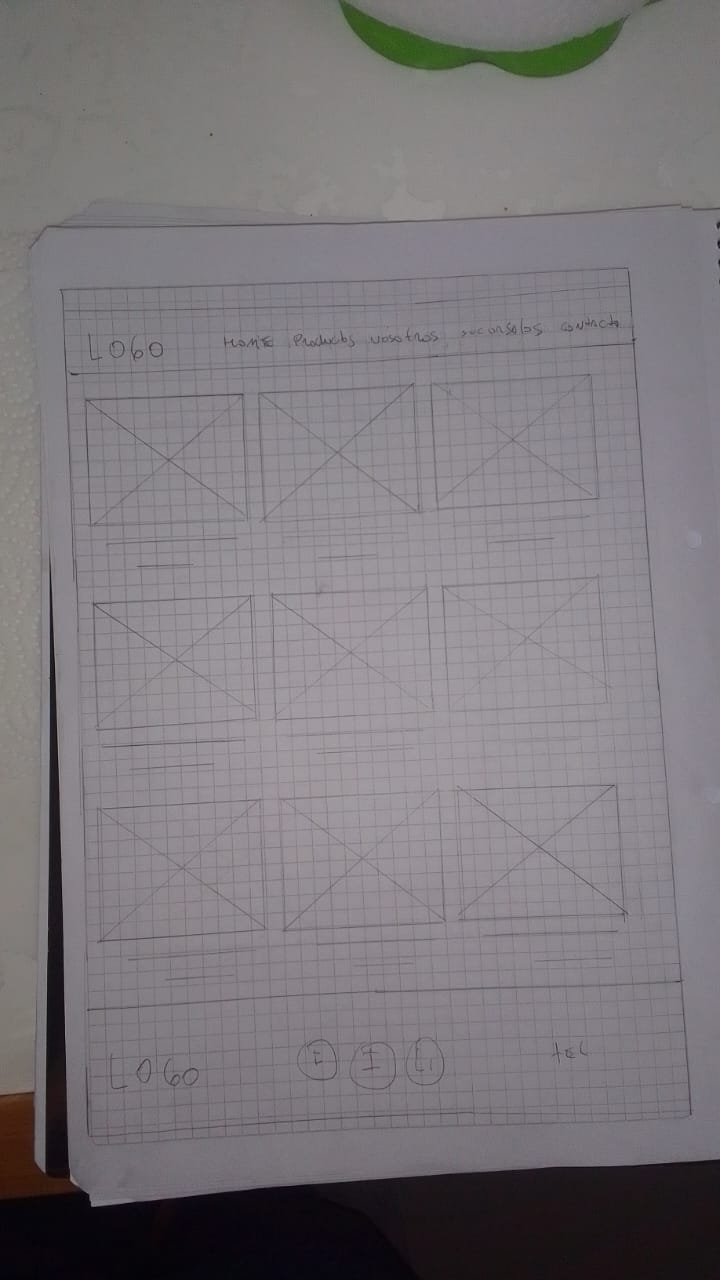 LOGO HOME Productos Nosotros sucursales contacto
LOGO F I Li TEL